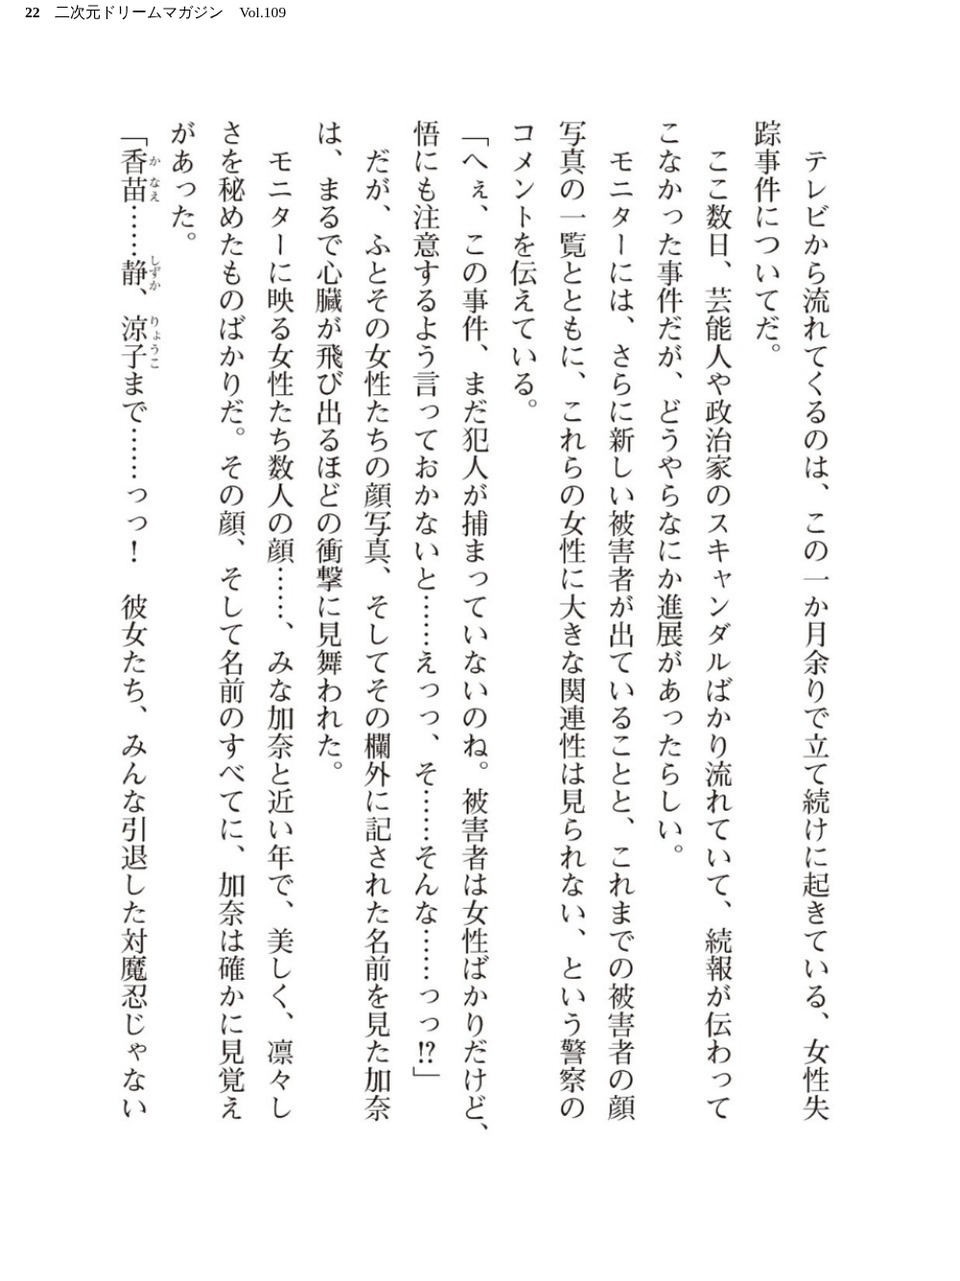 22 二次元ドリームマガジン Vol.109
テレビから流れてくるのは、この一か月余りで立て続けに起きている、女性失
踪事件についてだ。
ここ数日、芸能人や政治家のスキャンダルばかり流れていて、続報が伝わって
こなかった事件だが、どうやらなにか進展があったらしい。
モニターには、さらに新しい被害者が出ていることと、これまでの被害者の顔
写真の一覧とともに、これらの女性に大きな関連性は見られない、という警察の
コメントを伝えている。
「へぇ、この事件、まだ犯人が捕まっていないのね。被害者は女性ばかりだけど、
悟にも注意するよう言っておかないと……えっっ、そ……そんな……っっ!?」
だが、ふとその女性たちの顔写真、そしてその欄外に記された名前を見た加奈
は、まるで心臓が飛び出るほどの衝撃に見舞われた。
モニターに映る女性たち数人の顔……、みな加奈と近い年で、美しく、凛々し
さを秘めたものばかりだ。その顔、そして名前のすべてに、加奈は確かに見覚え
があった。
「香苗……静、涼子まで……っっ！　彼女たち、みんな引退した対魔忍じゃない
かなえ
しずか
りょうこ